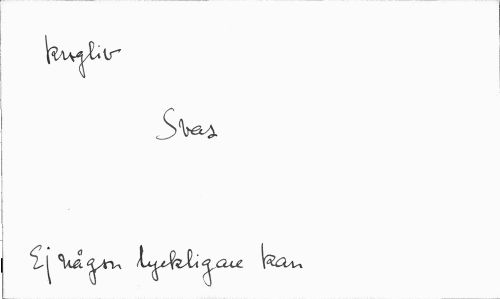 krogliv
Svas
Ej någon lyckligare kan